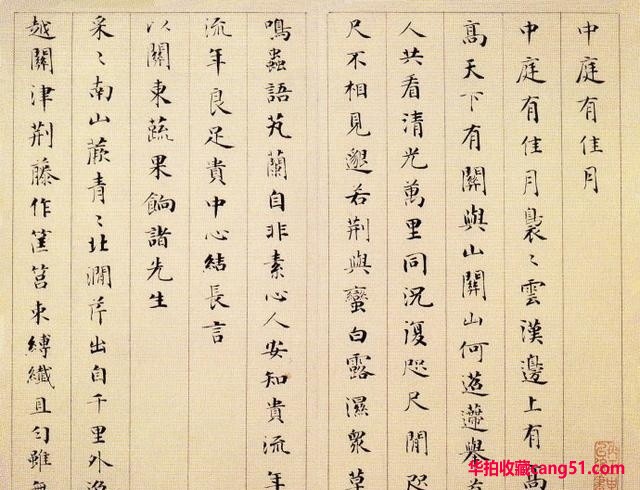 中庭有佳月
中庭有佳月裊〻雲漢邊上有萬
高天下有關與山關山何迢遞舉
人共看清光萬里同況復咫尺閒咫
尺不相見邈若荆與蠻白露濕衆草
鳴蟲語芄蘭自非素心人安知貴流年
流年良足貴中心結長言
以關東蔬果餉諸先生
采〻南山蕨青〻北澗芹出自千里外
越關津荆藤作筐筥束縛纖且勻雖
华拍收藏cang51.com